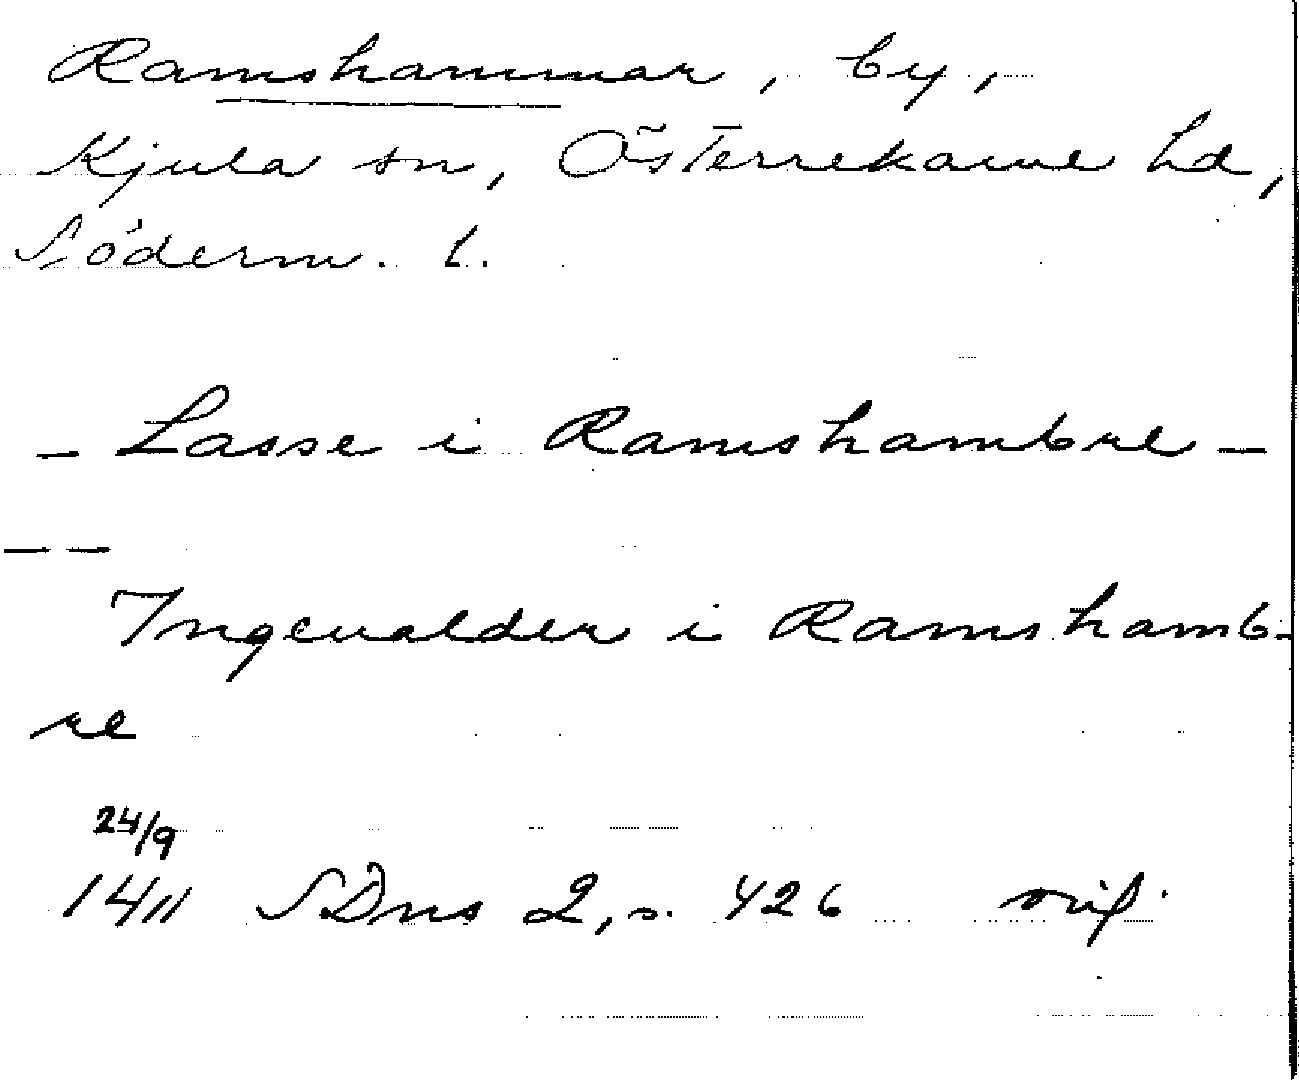 Ramshammar, by,
Kjula sn, Österrekarne hd,
Söderm. l.
- Lasse i Ramshambre -
- -
Ingeualder i Ramshamb-
re
24/9
1411 SDns 2, s. 426 orig.